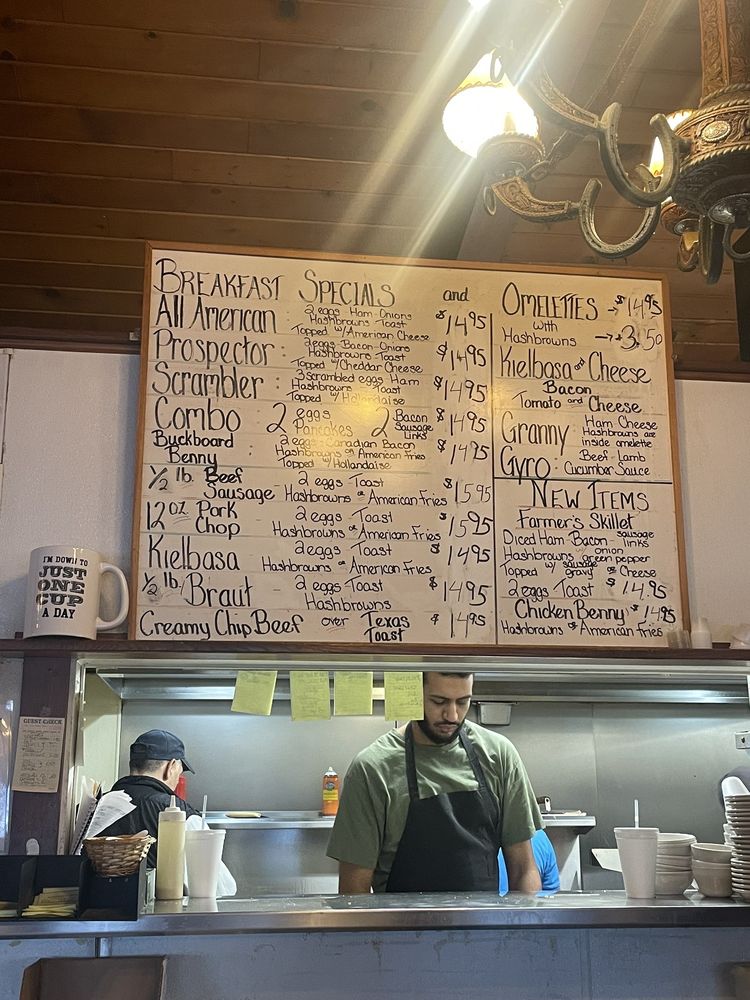 BREAKFAST SPECIALS and
All American : 2 eggs Ham-Onions $14.95
Hashbrowns Toast
Topped w/American Cheese
Prospector : 2 eggs-Bacon-Onions $14.95
Hashbrowns Toast
Topped w/Cheddar Cheese
Scrambler : 3 Scrambled eggs Ham $14.95
Hashbrowns Toast
Topped w/Hollandaise
Combo 2 eggs 2 Bacon $14.95
Pancakes Sausage
Links
Buckboard 2 eggs-Canadian Bacon $14.95
Benny Hashbrowns or American Fries
Topped w/Hollandaise
1/2 lb. Beef 2 eggs Toast $15.95
Sausage Hashbrowns or American Fries
12 oz. Pork 2 eggs Toast $15.95
Chop Hashbrowns or American Fries
Kielbasa 2 eggs Toast $14.95
Hashbrowns or American Fries
1/2 lb. Braut 2 eggs Toast $14.95
Hashbrowns
Creamy Chip Beef over Texas $14.95
Toast
OMELETTES → $14.95
with
Hashbrowns → 3.50
Kielbasa and Cheese
Bacon
Tomato and Cheese
Granny Ham Cheese
Hashbrowns are
inside omelette
Gyro : Beef-Lamb
Cucumber Sauce
NEW ITEMS
Farmer's Skillet
Diced Ham-Bacon-sausage links
Hashbrowns onion green pepper
Topped w/ sausage gravy or Cheese
2 eggs Toast $14.95
Chicken Benny $14.95
Hashbrowns or American Fries
I'M DOWN TO
JUST
ONE
CUP
A DAY
GUEST CHECK